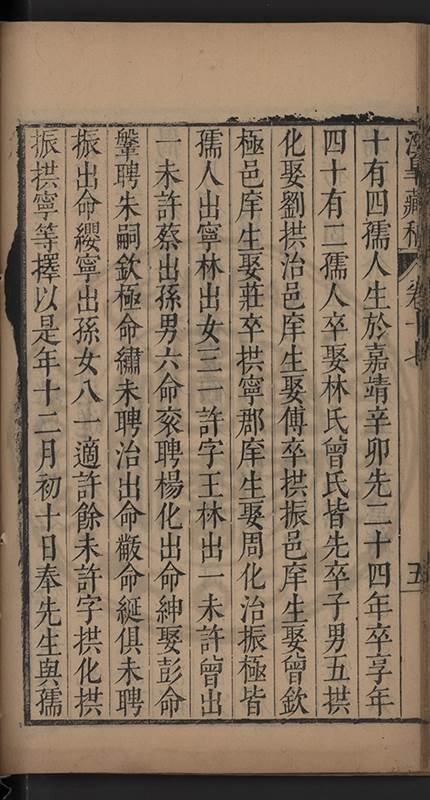 藏稿 卷十七 五
十有四孺人生於嘉靖辛卯先二十四年卒享年
四十有二孺人卒娶林氏曾氏皆先卒子男五拱
化娶劉拱治邑庠生娶傅卒拱振邑庠生娶曾欽
極邑庠生娶莊卒拱寧郡庠生娶周化治振極皆
孺人出寧林出女三一許字王林出一未許曾出
一未許蔡出孫男六命袞聘楊化出命紳娶彭命
鞶聘朱嗣欽極命繡未聘治出命黻命綖俱未聘
振出命纓寧出孫女八一適許餘未許字拱化拱
振拱寧等擇以是年十二月初十日奉先生與孺